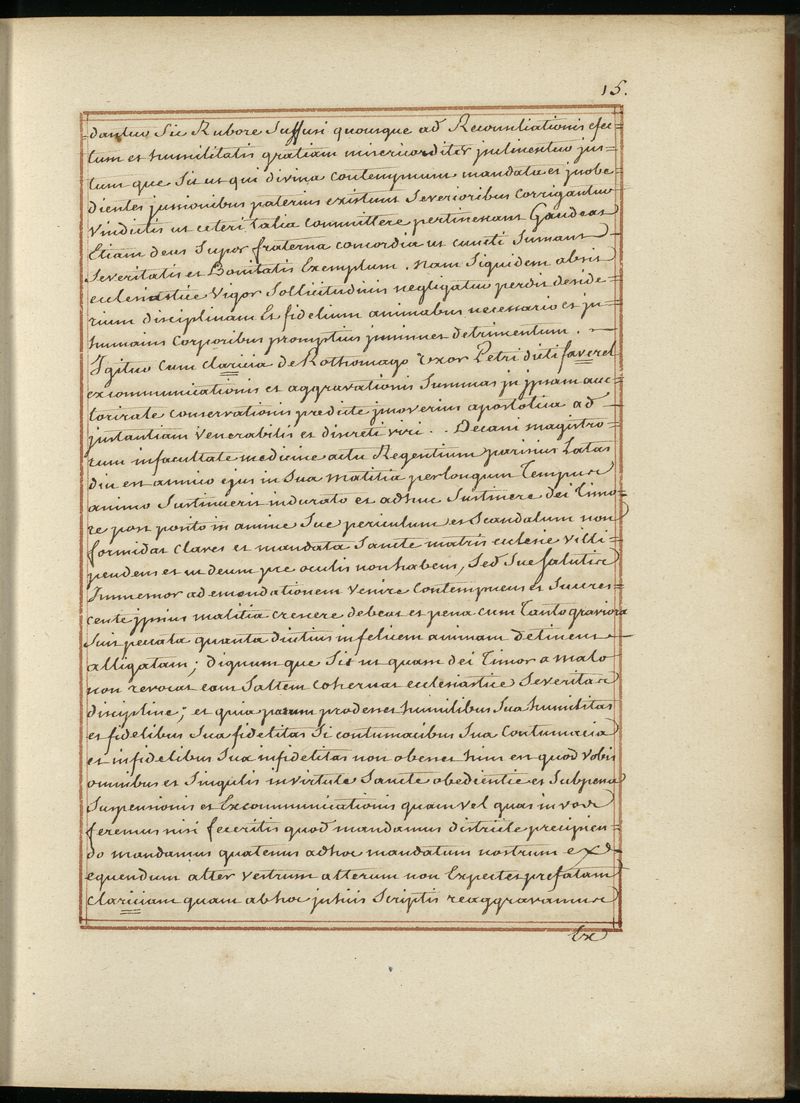 15.
dantur Sic Rubore Suffusi quousque ad Reconsiliationis efec=
tum et humilitatis gratiam misericorditer inclinentur jus=
tum que Sit ut qui divina contempnunt mandata et jnobe=
dientes jussionibus paternis existunt Severioribus corrigantur
vindictis ut ceteri talia committere pertimescant Gaudeat
Etiam deus Super fraterna concordia ut cuncti Sumant
Severitatis et Bonitatis Exemplum. Nam Siquidem absit
ecclesiastice Vigor Sollicitudinis negligatur perdit deside=
rium disciplinam Et fidelium animabus necessario et ju=
humanis Corporibus promptius imminet detrimentum.
Igitur Cum claricia de Rothomago Uxor Petri dicti faverel
excommunicationis et aggravationis Summas jn jpsam auc=
toritate conservationis predicte apostolica ad
jnstantiam Venerabilis et discreti viri . . Decani magistro=
rum infacultate medicine actu Regentium parisius Latas
diu est annuo ejus in Sua malitia perlongum Tempus
animo Sustinuerit indurato et adhuc Sustinere dei Timo=
re post posito in anime Sue periculum et Scandalum non
formidat claves et mandata Sancte matris ecclesie villi=
pendens et in deum pre oculis non habens, Sed Sue Salutis
Immemor ad emendationem venire Contempnens et Sucres=
cente jpsius malitia crescere debeat et pena cum Tanto graviora
Sint peccata quanta diutius infelicem animam detinent
alligatam; dignum que Sit ut quam dei Timor a malo
non revocat eam Saltem Coherceat ecclesiastice Severitas
discipline; et quia parum prodesset humilibus Sua humilitas
et fidelibus Sua fidelitas Si contumacibus Sua Contumacia
et infidelibus Sua infidelitas non obesset hinc est quod vobis
omnibus et Singulis in virtute Sancte obedientie et Subpena
Suspensionis et Excommunicationis quam vel quas in vos
feremus nisi feceritis quod mandamus districte precipien=
do mandamus quatenus adhoc mandatum nostrum ex=
equendum alter vestrum alterum non Expectes prefatam
clariciam quam ab hoc jn hiis Scriptis reaggravamus
Ex